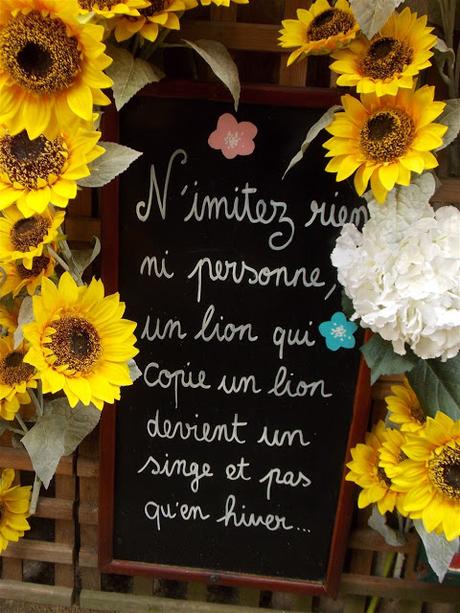 N'imitez rien
ni personne,
un lion qui
copie un lion
devient un
singe et pas
qu'en hiver...